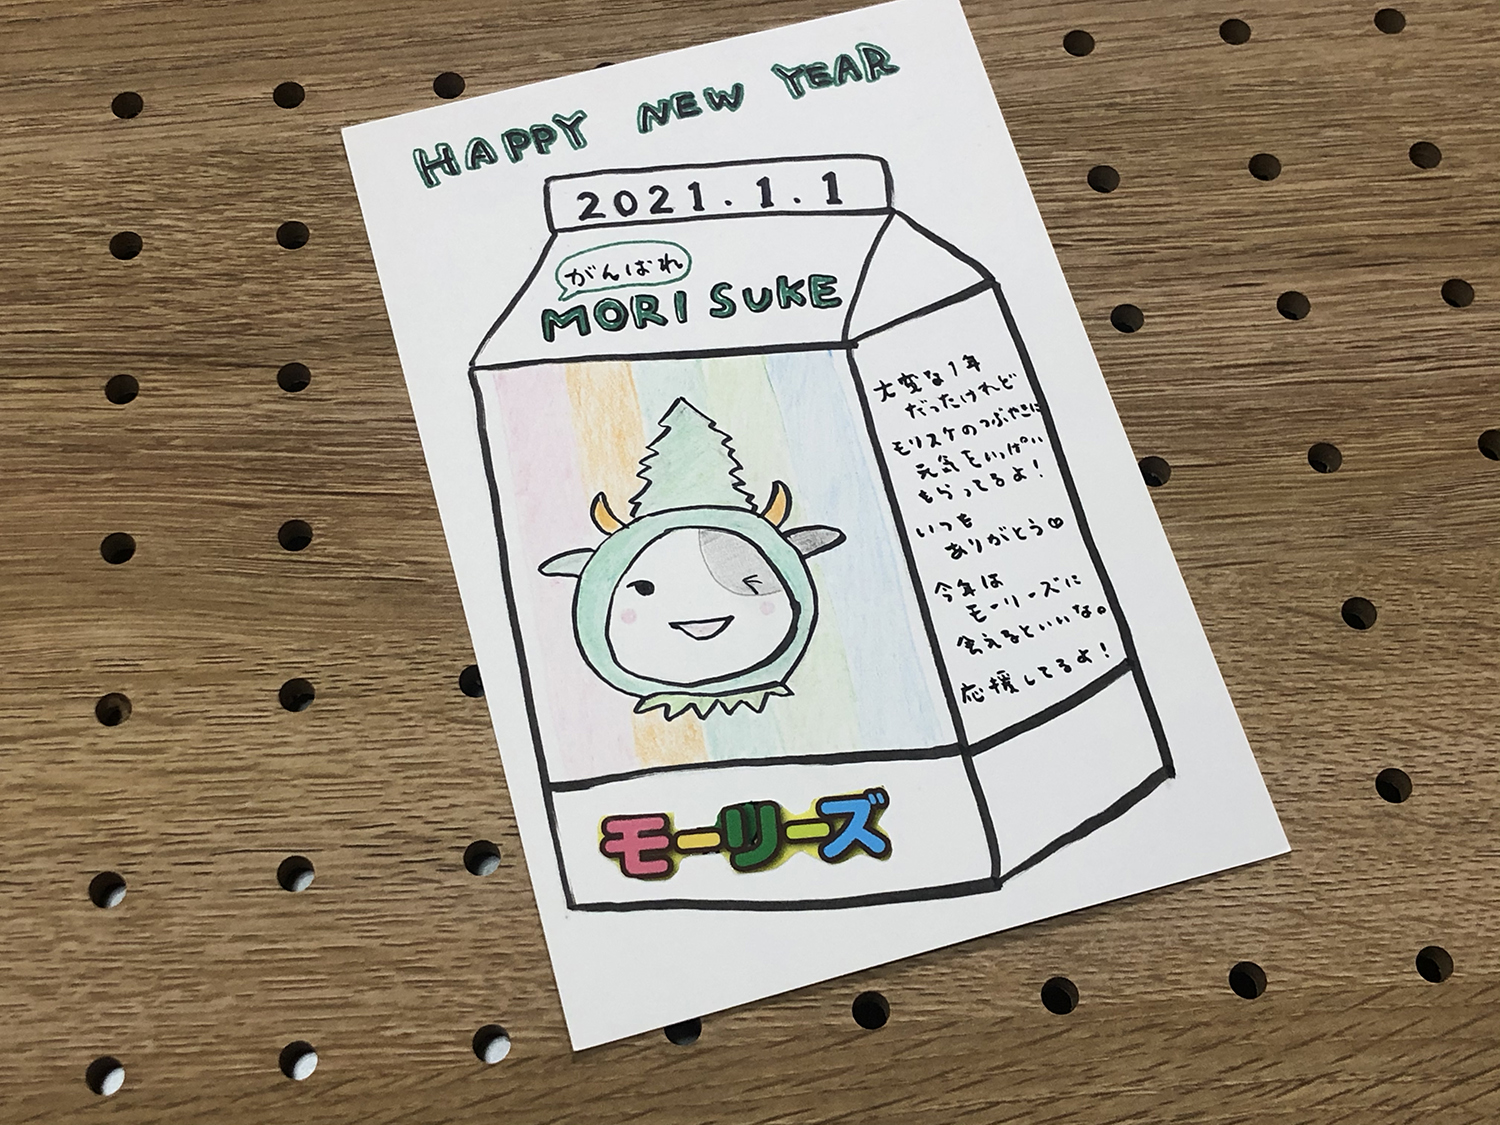 HAPPY NEW YEAR
2021.1.1
がんばれ
MORISUKE
大変な1年
だったけれど
モリスケのつぶやきに
元気をいっぱい
もらってるよ!
いつも
ありがとう♡
今年は
モーリーズに
会えるといいな。
応援してるよ!
モーリーズ